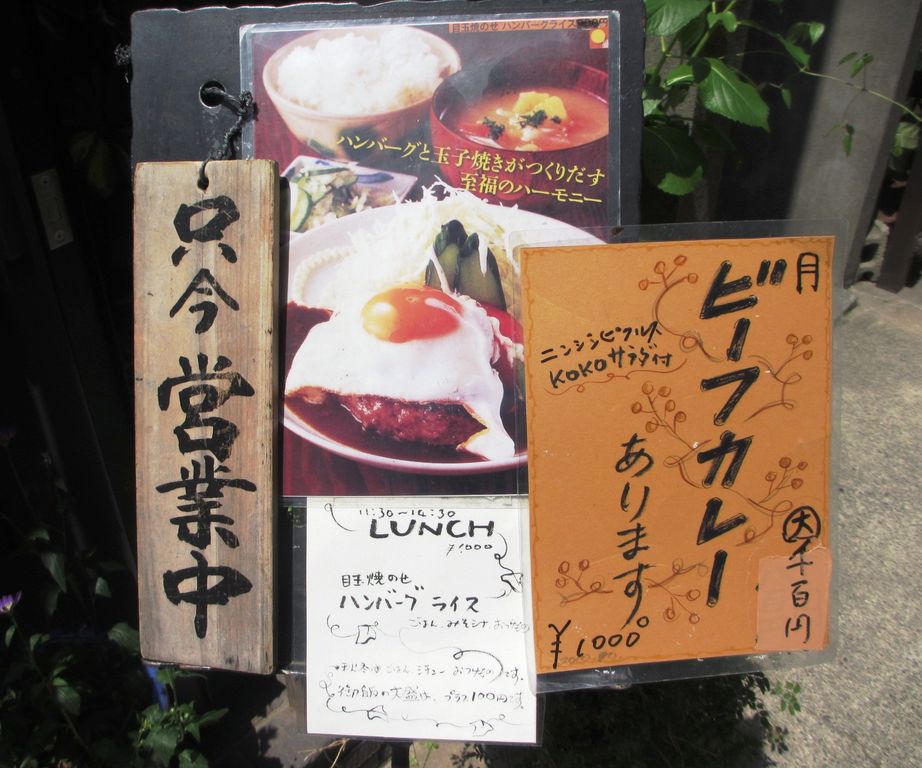 只今営業中
目玉焼のせ ハンバーグライス
ハンバーグと玉子焼きがつくりだす
至福のハーモニー
11:30~14:30
LUNCH
¥1000
目玉焼のせ
ハンバーグ ライス
ごはん、みそシル おつけもの
ごはん、シチュー おつけもの です。
御飯の大盛は、プラス100円です
月
ビーフカレー
ニンジンピクルス
KOKOサラダ付
あります。
¥1000
大 千百円